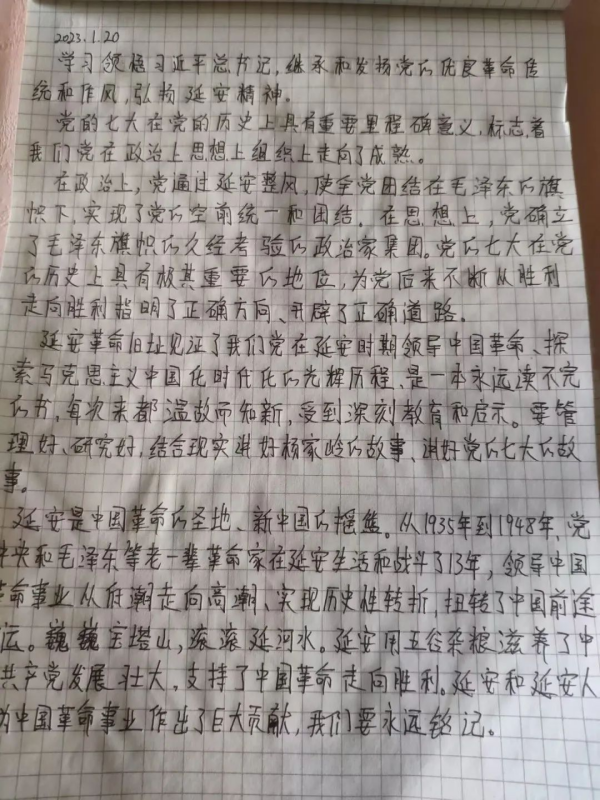 2023.1.20
学习领悟习近平总书记,继承和发扬党的优良革命传
统和作风,弘扬延安精神。
党的七大在党的历史上具有重要里程碑意义,标志着
我们党在政治上思想上组织上走向了成熟。
在政治上,党通过延安整风,使全党团结在毛泽东的旗
帜下,实现了党的空前统一和团结。在思想上,党确立
了毛泽东旗帜的久经考验的政治家集团。党的七大在党
的历史上具有极其重要的地位,为党后来不断从胜利
走向胜利指明了正确方向、开辟了正确道路。
延安革命旧址见证了我们党在延安时期领导中国革命、探
索马克思主义中国化时代化的光辉历程,是一本永远读不完
的书,每次来都温故而知新,受到深刻教育和启示。要管
理好、研究好,结合现实讲好杨家岭的故事、讲好党的七大的故
事。
延安是中国革命的圣地、新中国的摇篮。从1935年到1948年,党
中央和毛泽东等老一辈革命家在延安生活和战斗了13年,领导中国
革命事业从低潮走向高潮、实现历史性转折,扭转了中国前途
运。巍巍宝塔山,滚滚延河水。延安用五谷杂粮滋养了中
共产党发展壮大,支持了中国革命走向胜利。延安和延安人
为中国革命事业作出了巨大贡献,我们要永远铭记。